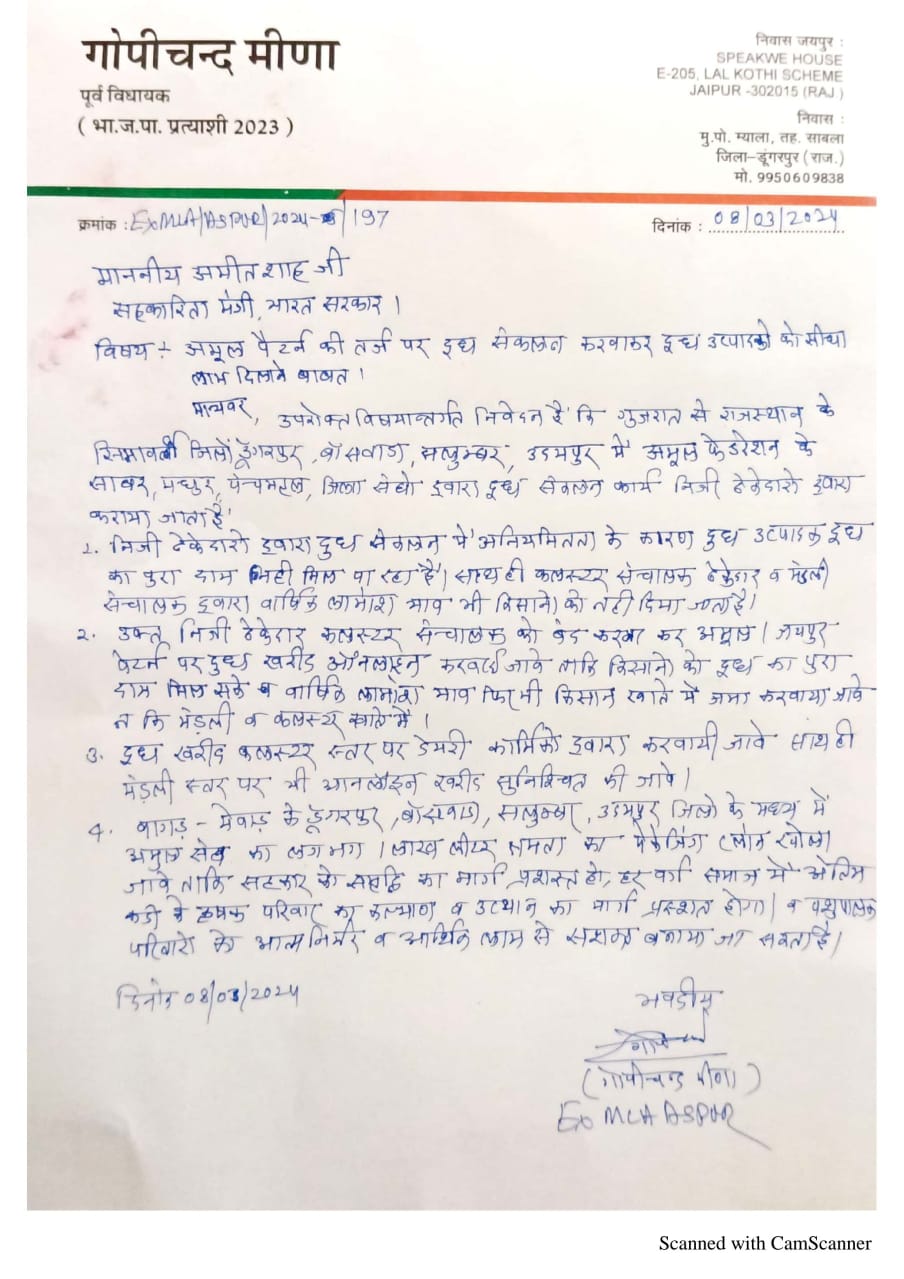 गोपीचन्द मीणा
पूर्व विधायक
( भा.ज.पा. प्रत्याशी 2023 )
निवास जयपुर :
SPEAKWE HOUSE
E-205, LAL KOTHI SCHEME
JAIPUR -302015 (RAJ.)
निवास :
मु.पो. म्याला, तह. साबला
जिला–डूंगरपुर (राज.)
मो. 9950609838
क्रमांक : Ex MLA/ASPUR/2024- /197
दिनांक : 08/03/2024
माननीय अमीत शाह जी
सहकारिता मंत्री, भारत सरकार ।
विषय :- अमूल पैटर्न की तर्ज पर दुध संकलन करवाकर दुध उत्पादको को सीधा
लाभ दिलाने बाबत ।
मान्यवर,
उपरोक्त विषयान्तर्गत निवेदन है कि गुजरात से राजस्थान के
सिमावर्ती जिलों डूँगरपुर, बाँसवाडा, सलुम्बर, उदयपुर में अमूल फेडरेशन के
साबर, मधुर, पंचमहल, जिला संघो द्वारा दुध संकलन कार्य निजी ठेकेदारो द्वारा
कराया जाता है
1. निजी ठेकेदारो द्वारा दुध संकलन में अनियमितता के कारण दुध उत्पादक दुध
का पुरा दाम नही मिल पा रहा है। साथ ही कलस्टर संचालक ठेकेदार व मंडली
संचालक द्वारा वार्षिक लाभांश भाव भी किसानो को नही दिया जाता है।
2. उक्त निजी ठेकेदार कलस्टर संचालक को बंद करवा कर अमूल / जयपुर
पेटर्न पर दुध खरीद ऑनलाइन करवाई जावे ताकि किसानो को दुध का पुरा
दाम मिल सके व वार्षिक लाभांश भाव फिर भी किसान खाते में जमा करवाया जावे
न कि मंडली व कलस्टर खाते में ।
3. दुध खरीद कलस्टर स्तर पर डेयरी कार्मिको द्वारा करवायी जावे साथ ही
मंड़ली स्तर पर भी आनलाइन खरीद सुनिश्चित की जावे।
4. वागड़ - मेवाड़ के डूँगरपुर, बाँसवाडा, सलुम्बर, उदयपुर जिलो के मध्य में
अमूल संघ का लगभग 1 लाख लीटर क्षमता का पेकेजिंग प्लांट खोला
जावे ताकि सहकार से समृद्धि का मार्ग प्रशस्त हो, हर वर्ग समाज में अंतिम
कडी के कृषक परिवार का कल्याण व उत्थान का मार्ग प्रशस्त होगा। व पशुपालक
परिवारो को आत्मनिर्भर व आर्थिक लाभ से सशक्त बनाया जा सकता है।
दिनांक 08/03/2024
भवदीय
(गोपीचन्द मीणा)
Ex MLA ASPUR
Scanned with CamScanner